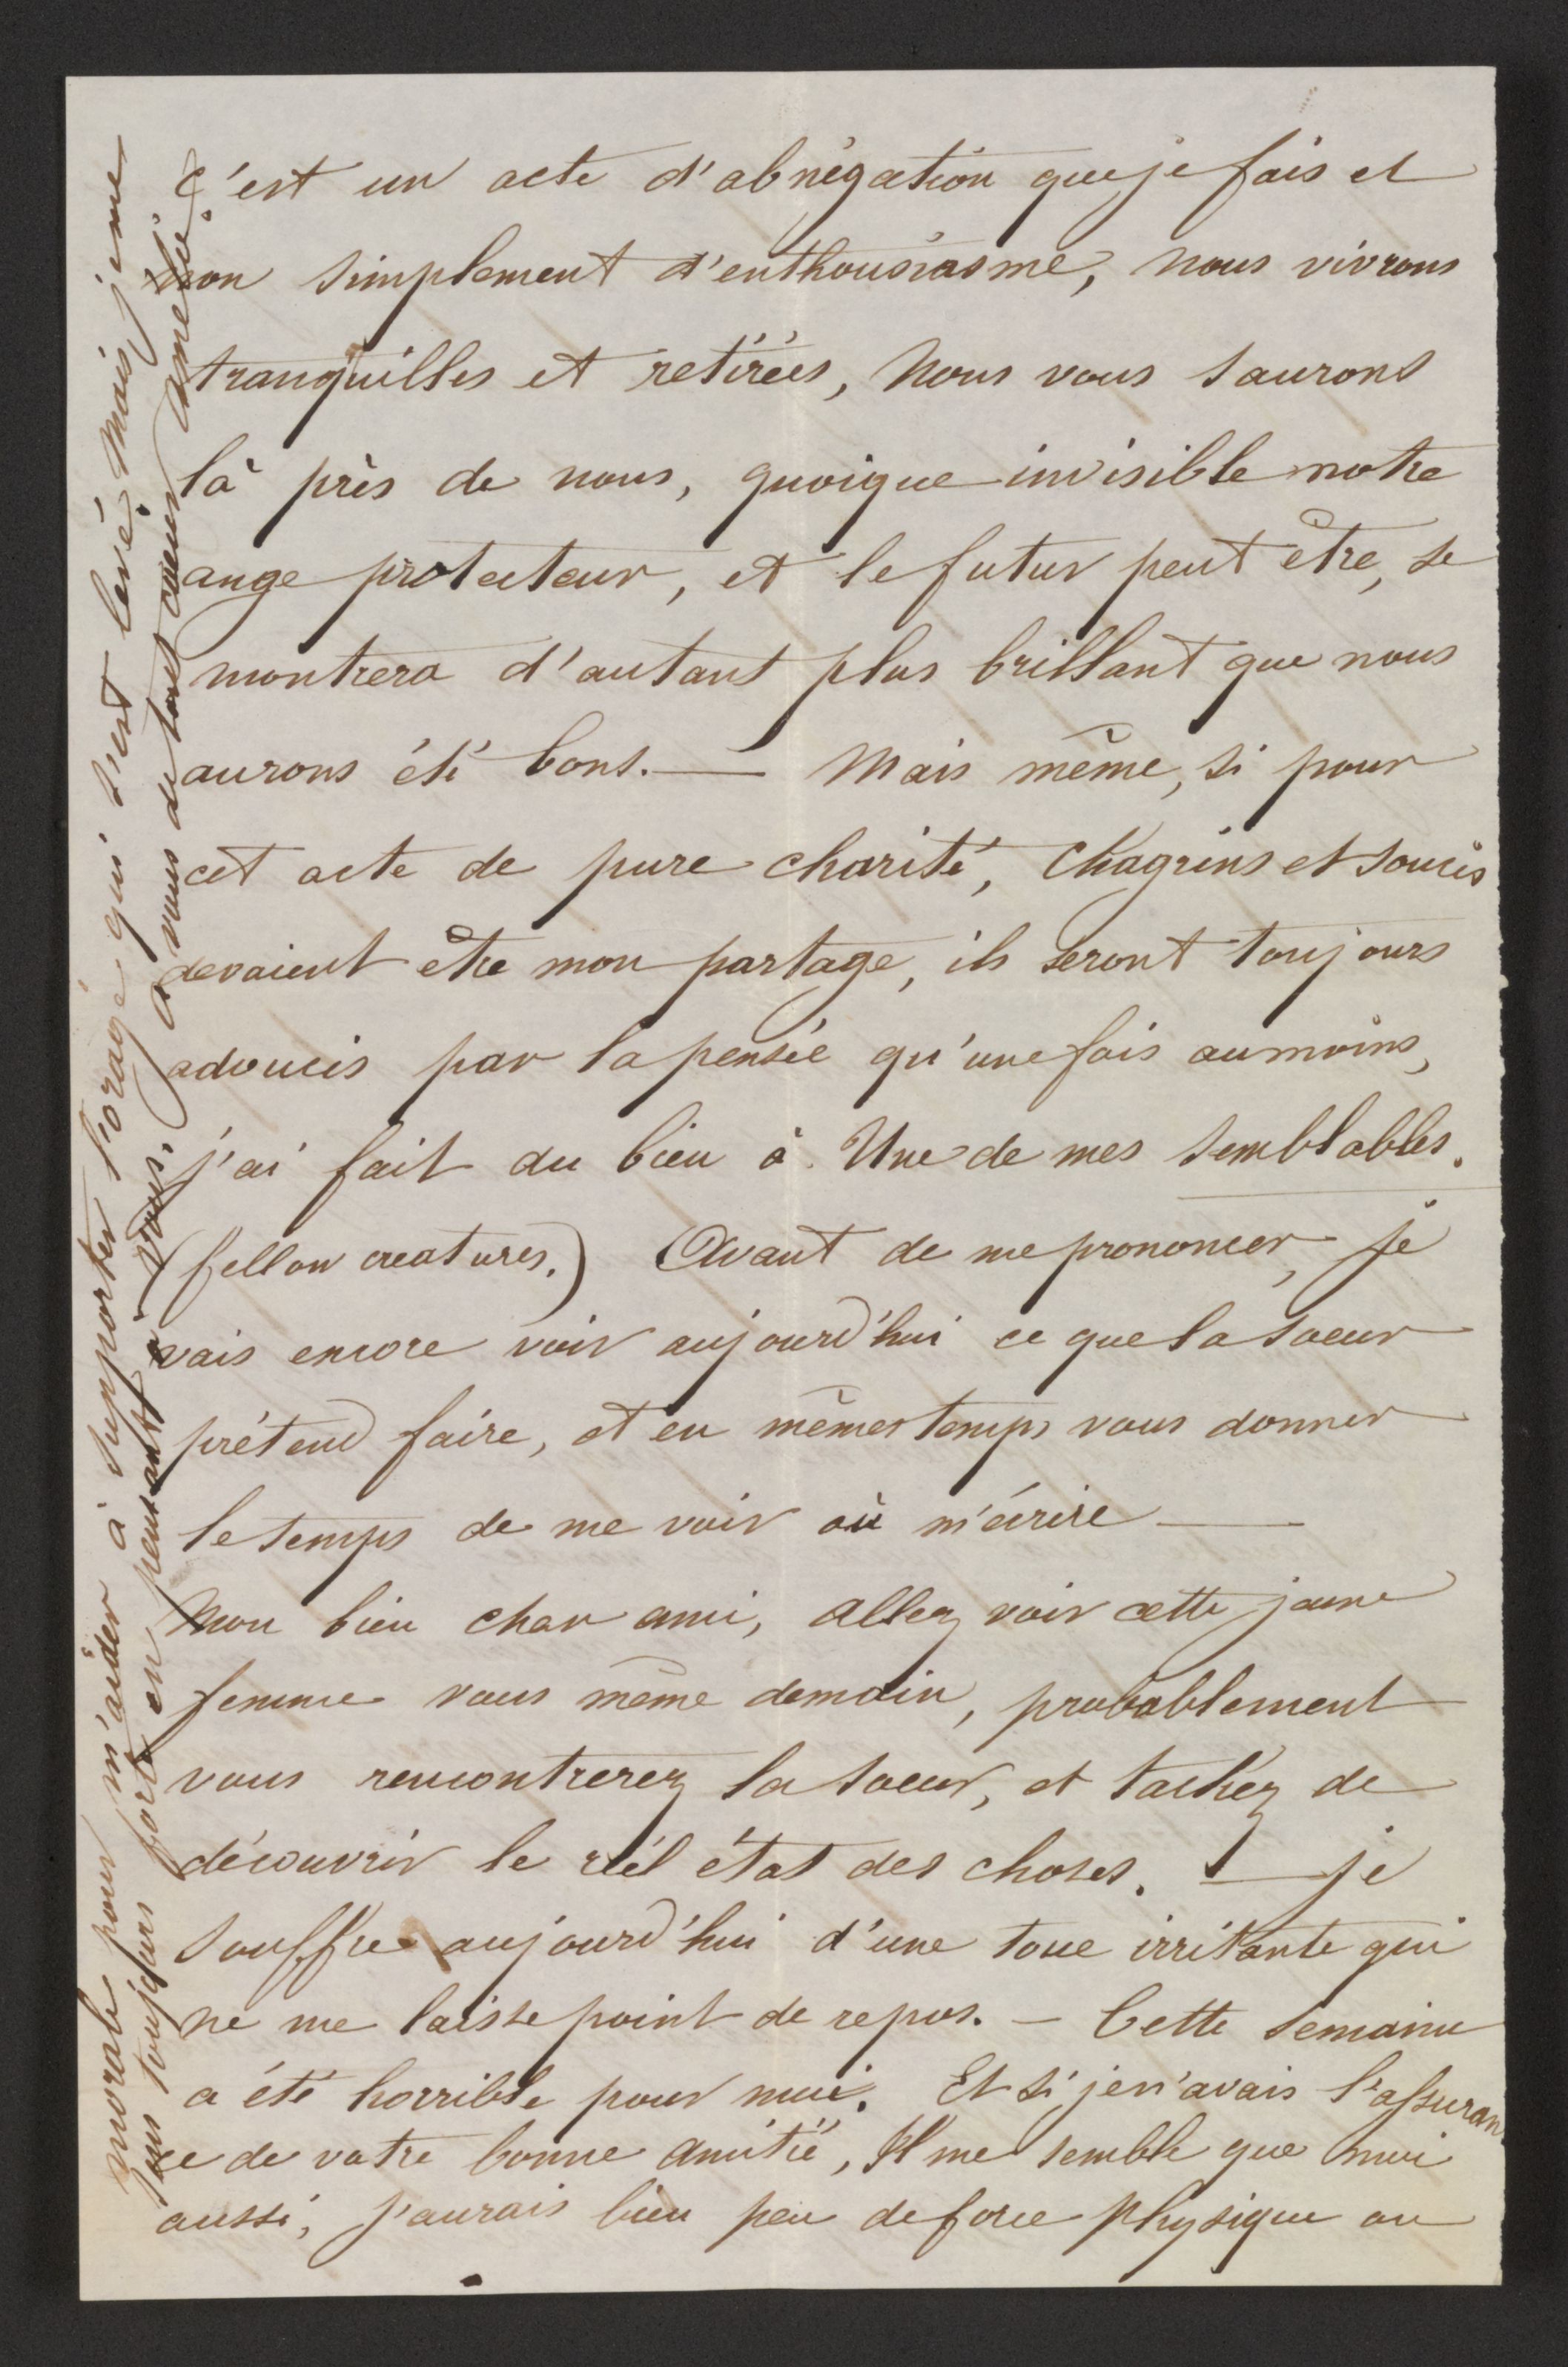 C'est un acte d'abnégation que je fais et
non simplement d'enthousiasme, nous vivrons
tranquilles et retirées, nous vous saurons
là près de nous, quoique invisible notre
ange protecteur, et le futur peut être, se
montrera d'autant plus brillant que nous
aurons été bons. — Mais même, si pour
cet acte de pure charité, chagrins et soucis
devaient être mon partage, ils seront toujours
adoucis par la pensée qu'une fois au moins,
j'ai fait du bien à Une de mes semblables.
(fellow creatures.) Avant de me prononcer, je
vais encore voir aujourd'hui ce que la soeur
prétend faire, et en mêmes temps vous donner
le temps de me voir où m'écrire —
Mon bien cher ami, allez voir cette jeune
femme vous même demain, probablement
vous rencontrerez la soeur, et tachez de
découvrir le réel état des choses. — je
souffre aujourd'hui d'une toue irritante qui
ne me laisse point de repos. — Cette semaine
a été horrible pour moi. Et si je n'avais l'assuran
ce de votre bonne amitié, Il me semble que moi
aussi, j'aurais bien peu de force physique ou
morale pour m'aider à supporter l'orage qui s'est levé. Mais, je me
sens toujours forte en pensant à vous, à vous de tout coeur Amelie.